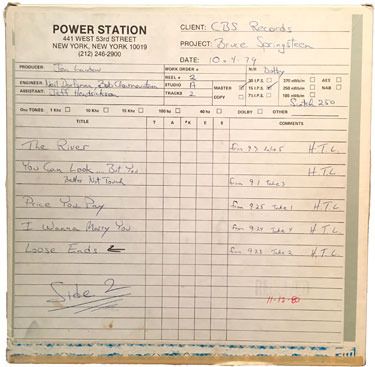 POWER STATION
441 WEST 53rd STREET
NEW YORK, NEW YORK 10019
(212) 246-2900
CLIENT: CBS Records
PROJECT: Bruce Springsteen
DATE: 10.4.79
PRODUCER: Jon Landau
WORK ORDER #
N/R Dolby
REEL # 2
ENGINEER: Neil Dorfsman, Bob Clearmountain
STUDIO A
ASSISTANT: Jeff Hendrickson
TRACKS 2
MASTER
COPY
30 I.P.S.
15 I.P.S.
7½ I.P.S.
370 nWb/m
250 nWb/m
185 nWb/m
AES
NAB
Scotch 250
Osc TONES:
1 Khz
10 Khz
15 Khz
100 hz
40 hz
50 hz
DOLBY
OTHER
TITLE
T A K E S
COMMENTS
The River
H.T.C.
You Can Look... But You
Better Not Touch
H.T.C.
from 9.1 take 3
Price You Pay
from 9.25 take 1 H.T.C.
I Wanna Marry You
from 9.24 take 4 H.T.C.
Loose Ends
take 2 H.T.C.
Side 2
11-12-80